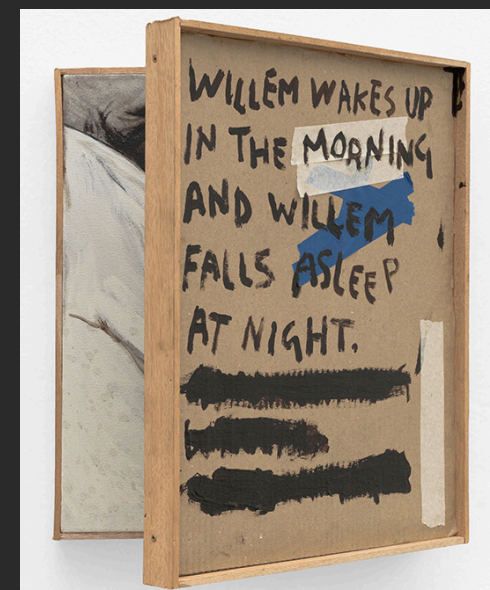 WILLEM WAKES UP
IN THE MORNING
AND WILLEM
FALLS ASLEEP
AT NIGHT.